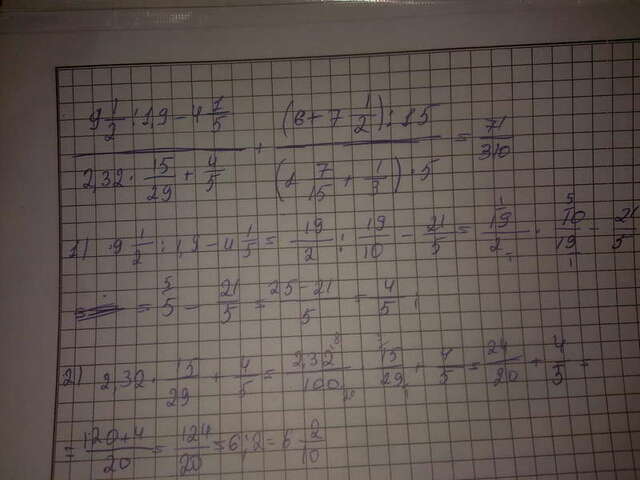 9 1/2 : 1,9 - 4 1/5 / 2,32 · 15/29 + 4/5 + (6 + 7 1/2) : 15 / (2 7/15 + 1/3) · 5 = 71/310
1) 9 1/2 : 1,9 - 4 1/5 = 19/2 : 19/10 - 21/5 = 19/2 · 10/19 - 21/5
= 5/5 - 21/5 = 25-21/5 = 4/5 ;
2) 2,32 · 15/29 + 4/5 = 232/100 · 15/29 + 4/5 = 24/20 + 4/5 =
= 120+4/20 = 124/20 = 6,2 = 6 2/10